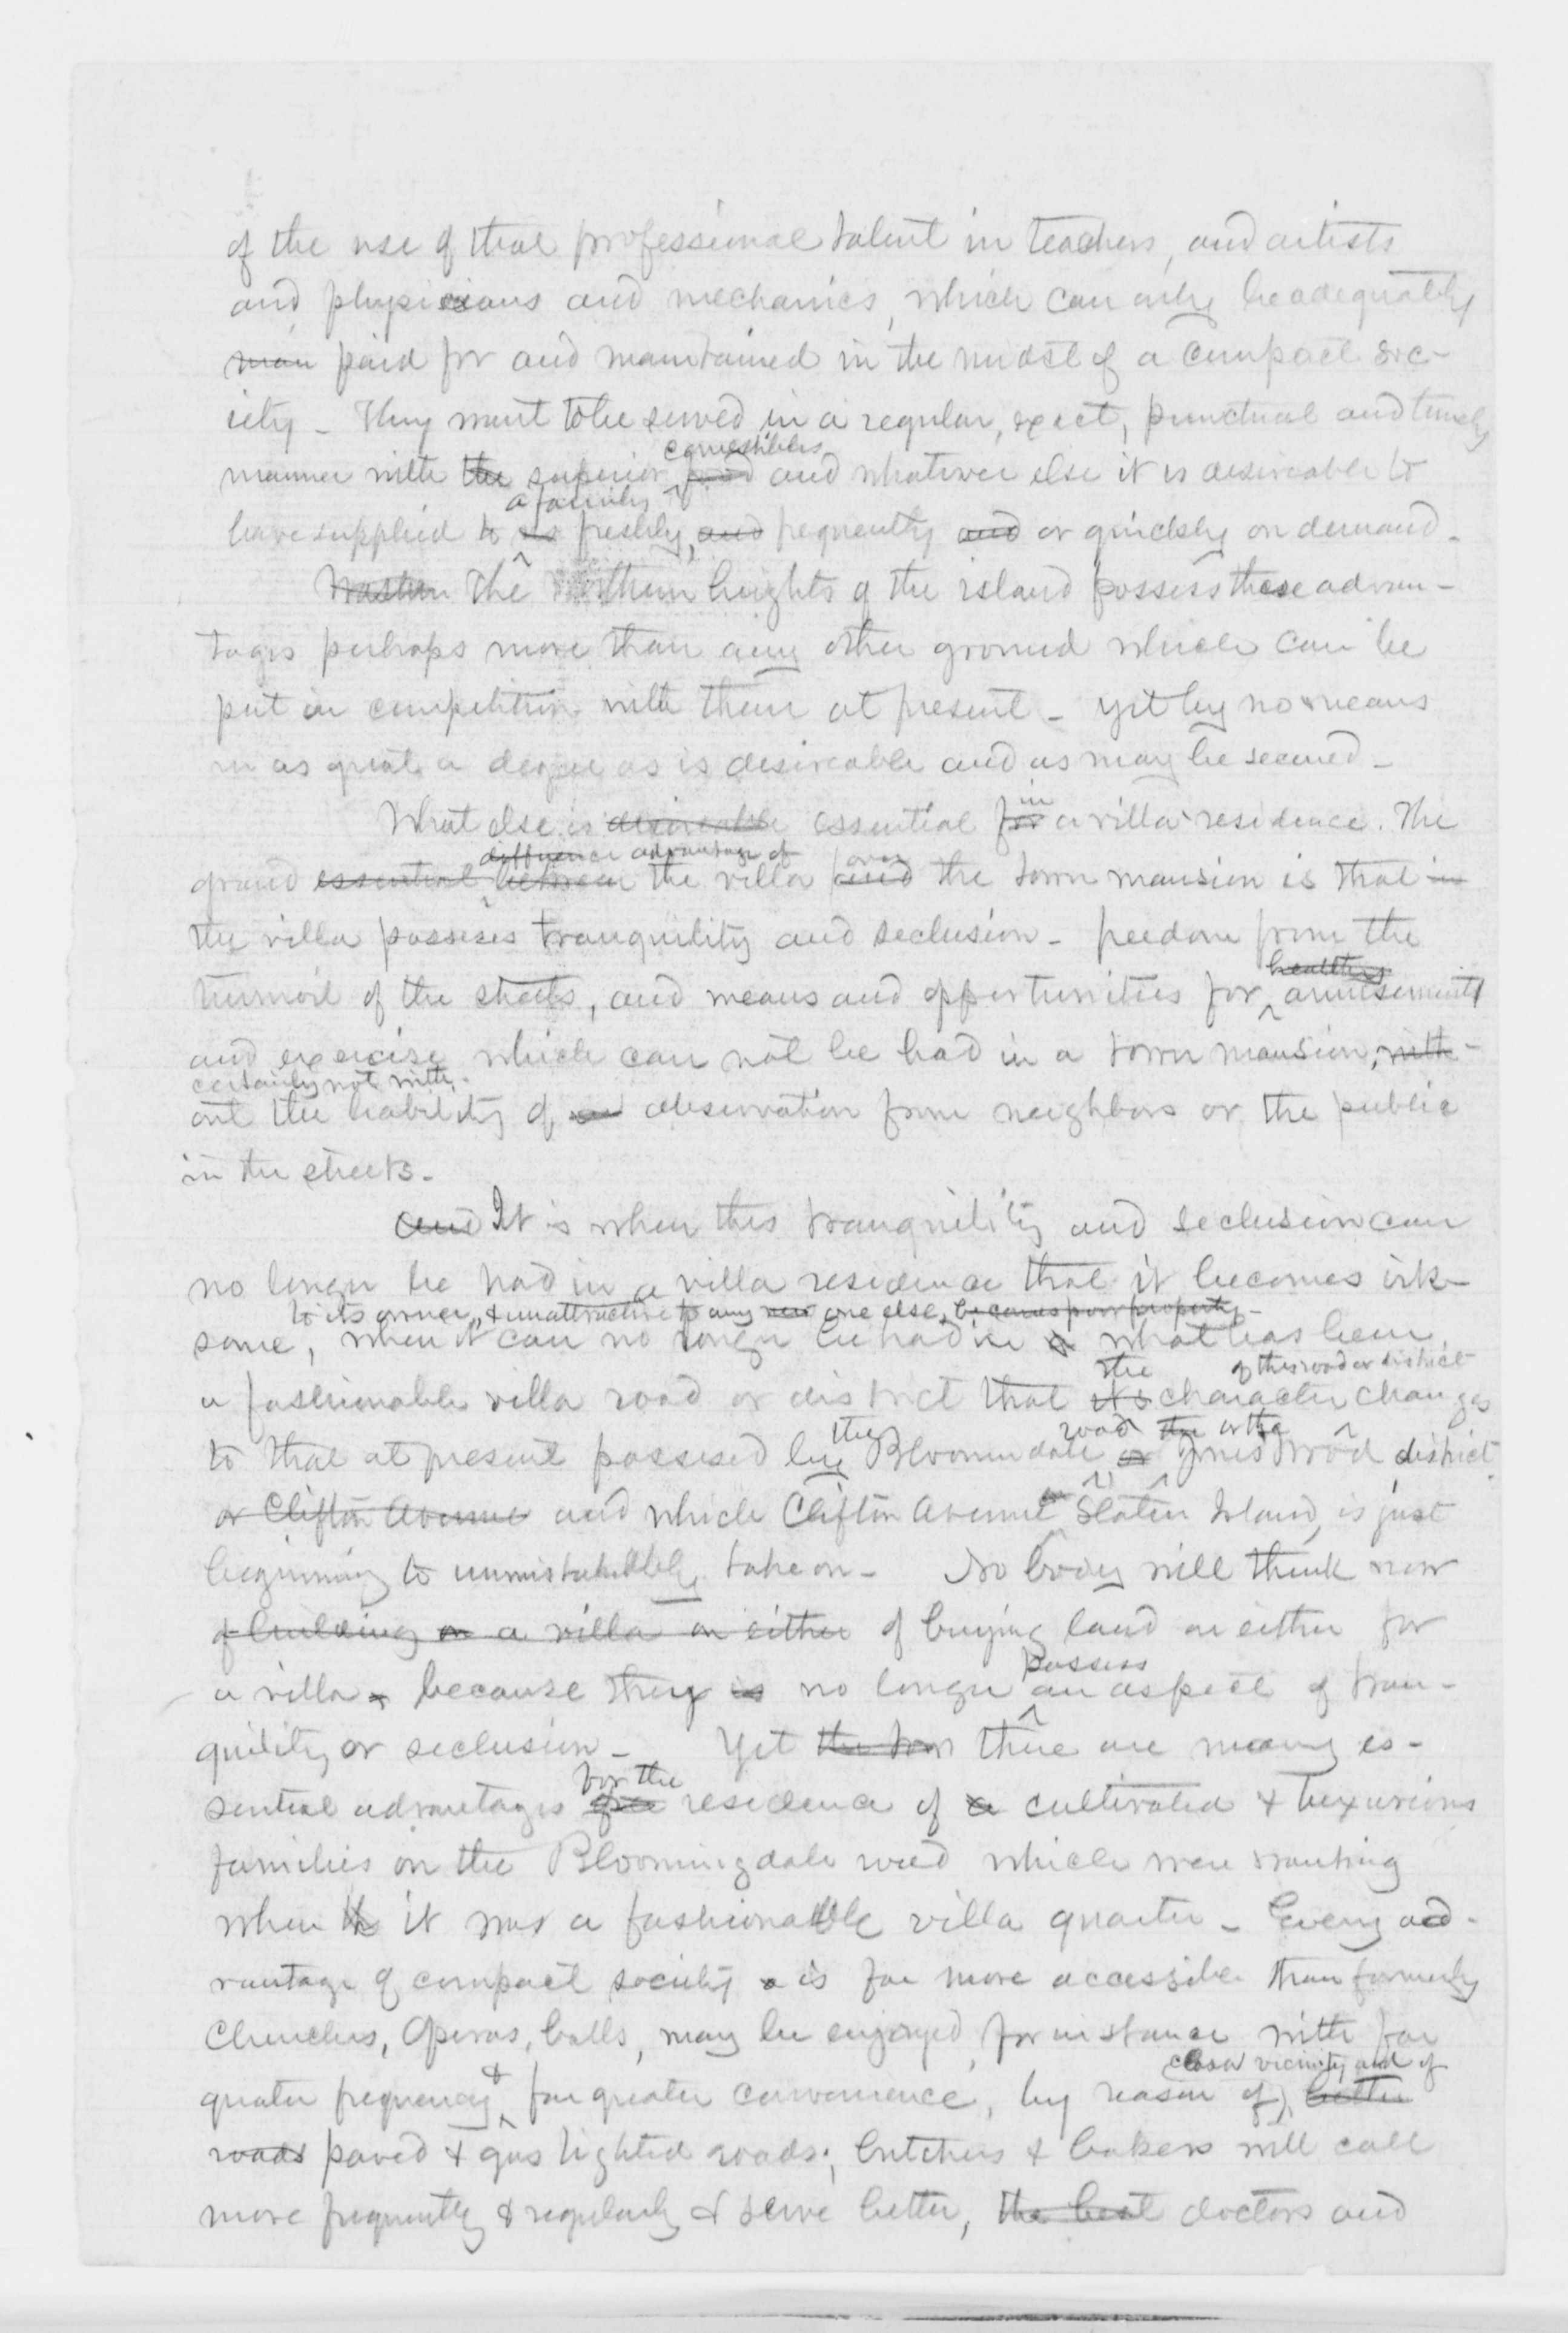 of the use of that professional talent in teachers, and artists
and physicians and mechanics, which can only be adequately
man paid for and maintained in the midst of a compact soc-
iety - They want to be served in a regular, exact, punctual and timely
comestibles
manner with the superior food and whatever else it is desireable to
a family
have supplied to so freshly, and frequently and or quickly on demand.
The northern heights of the island possess these advan-
tages perhaps more than any other ground which can be
put in competition with them at present - yet by no means
in as great a degree as is desireable and as may be secured -
in
What else is desireable essential for a villa residence. The
difference advantage of over
grand essential between the villa and the town mansion is that in
the villa possesses tranquility and seclusion - freedom from the
healthy
turmoil of the streets, and means and opportunities for amusements
and exercise which can not be had in a town mansion, with-
certainly not with-
out the liability of observation from neighbors or the public
in the streets -
and It is when this tranquility and seclusion can
no longer be had in a villa residence that it becomes irk-
to its owner, & unattractive to any new one else, becomes poor property -
some, when it can no longer be had in a what has been
the of this road or district
a fashionable villa road or district that its character changes
the road the or the
to that at present possessed by Bloomindale or Jones Wood district
or Clifton Avenue and which Clifton Avenue Staten Island, is just
beginning to unmistakably take on - No body will think now
of building on a villa on either of buying land on either for
possess
a villa, because they is no longer an aspect of tran-
quility or seclusion - Yet the town there are many es-
for the
sential advantages residence of a cultivated & luxurious
families on the Bloomingdale road which were wanting
when th it was a fashionable villa quarter - Every ad-
vantage of compact society is far more accessible than formerly
Churches, Operas, balls, may be enjoyed, for instance with far
& closer vicinity and of
greater frequency far greater convenience, by reason of better
roads paved & gas lighted roads; butchers & bakers will call
more frequently & regularly & serve better, the best doctors and